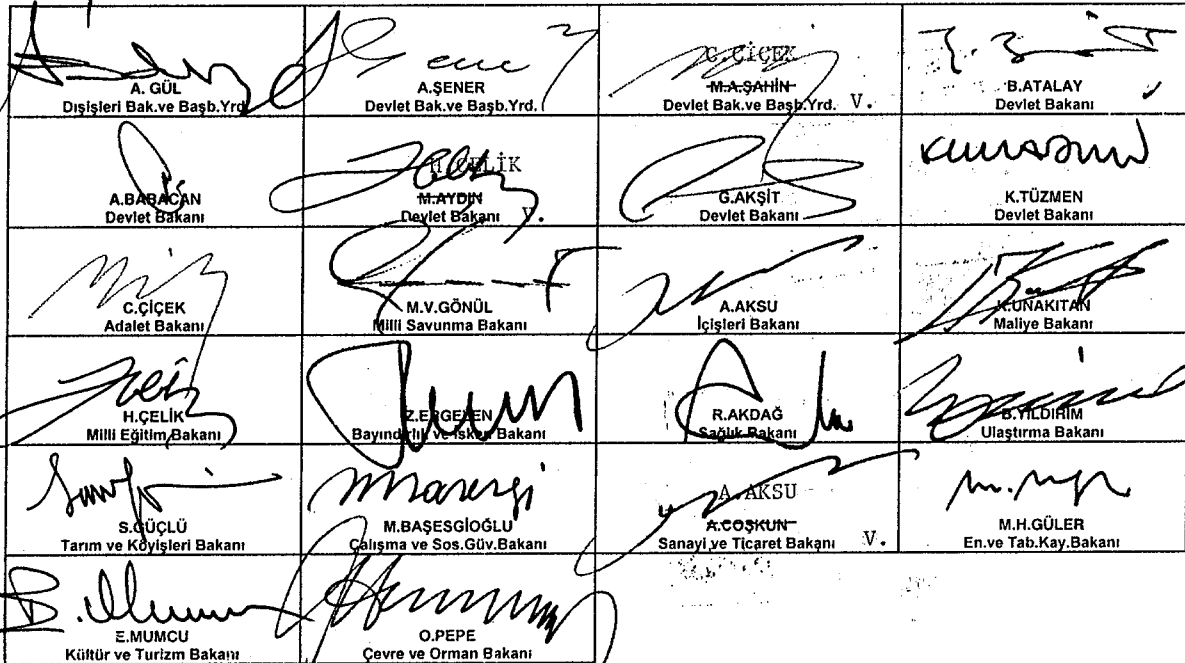 A. GÜL
Dışişleri Bak.ve Başb.Yrd.
A.ŞENER
Devlet Bak.ve Başb.Yrd.
C.ÇİÇEK
M.A.ŞAHİN
Devlet Bak.ve Başb.Yrd. V.
B.ATALAY
Devlet Bakanı
A.BABACAN
Devlet Bakanı
H.ÇELİK
M.AYDIN
Devlet Bakanı V.
G.AKŞİT
Devlet Bakanı
K.TÜZMEN
Devlet Bakanı
C.ÇİÇEK
Adalet Bakanı
M.V.GÖNÜL
Milli Savunma Bakanı
A.AKSU
İçişleri Bakanı
K.UNAKITAN
Maliye Bakanı
H.ÇELİK
Milli Eğitim Bakanı
Z.ERGEZEN
Bayındırlık ve İskan Bakanı
R.AKDAĞ
Sağlık Bakanı
B.YILDIRIM
Ulaştırma Bakanı
S.GÜÇLÜ
Tarım ve Köyişleri Bakanı
M.BAŞESGİOĞLU
Çalışma ve Sos.Güv.Bakanı
A.AKSU
A.COŞKUN
Sanayi ve Ticaret Bakanı V.
M.H.GÜLER
En.ve Tab.Kay.Bakanı
E.MUMCU
Kültür ve Turizm Bakanı
O.PEPE
Çevre ve Orman Bakanı